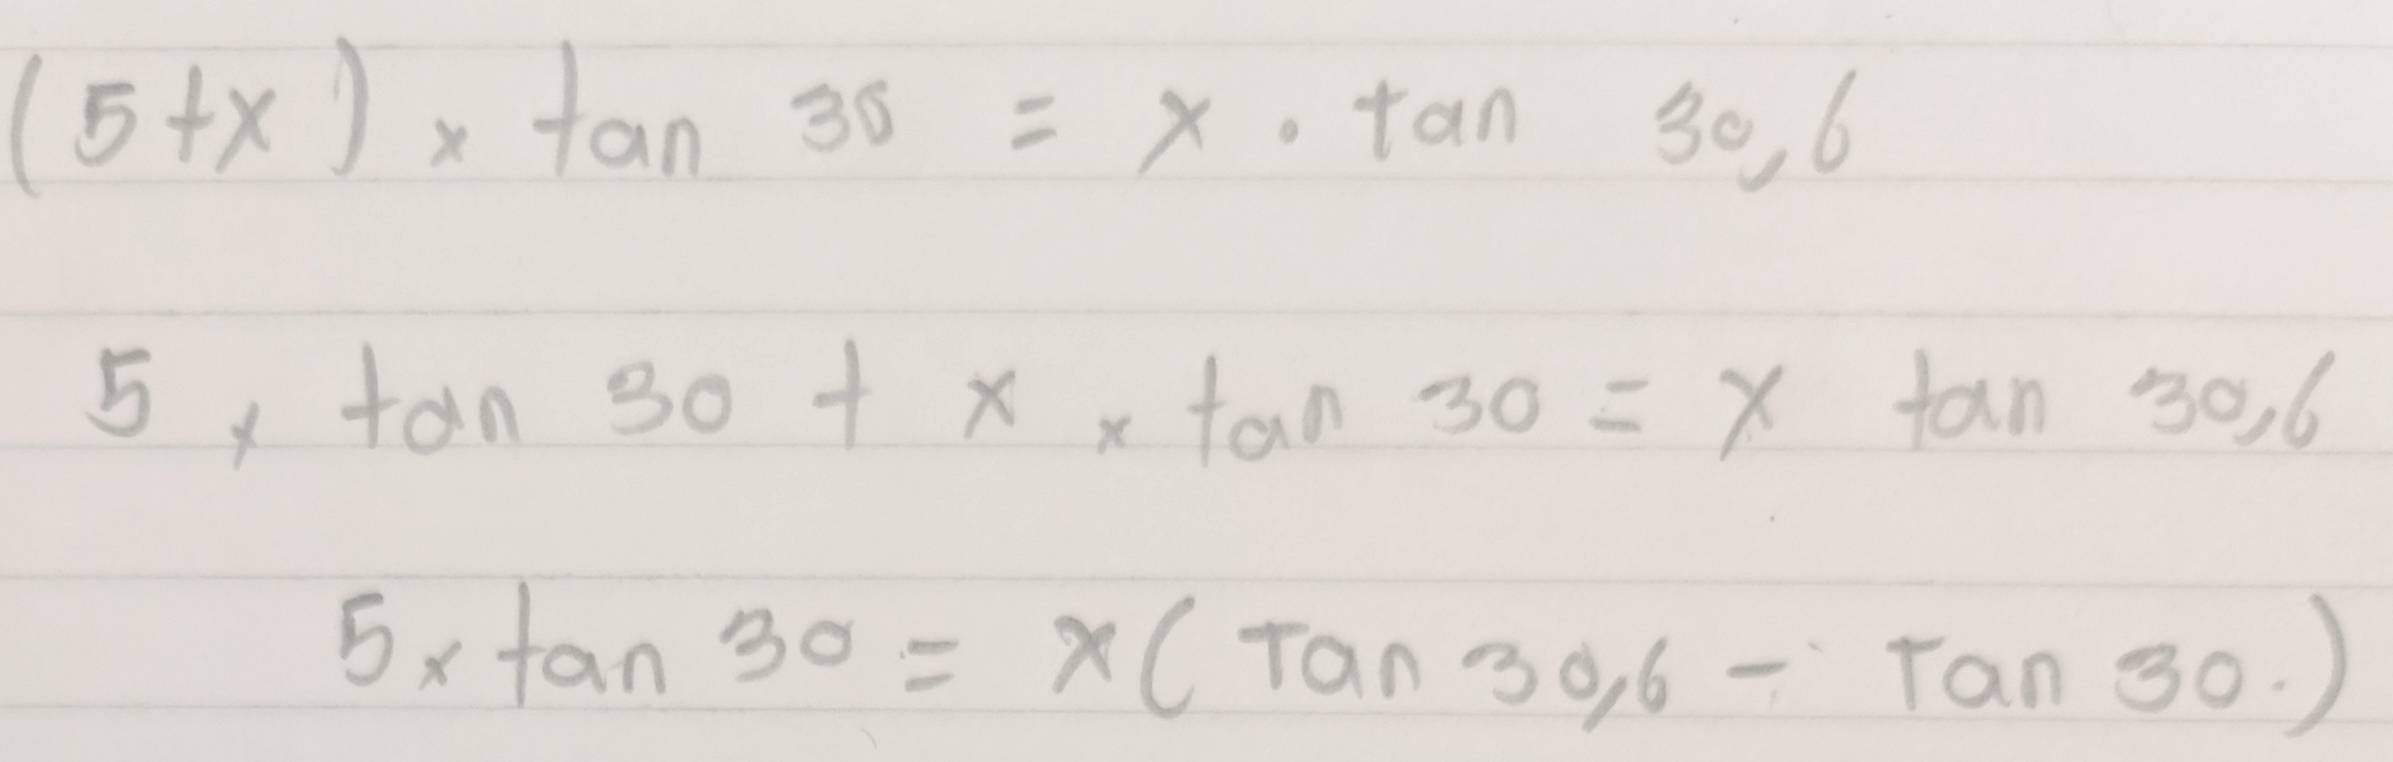 (5+x) × tan 30 = x · tan 30,6
5 × tan 30 + x × tan 30 = x tan 30,6
5 × tan 30 = x(Tan 30,6 - Tan 30.)